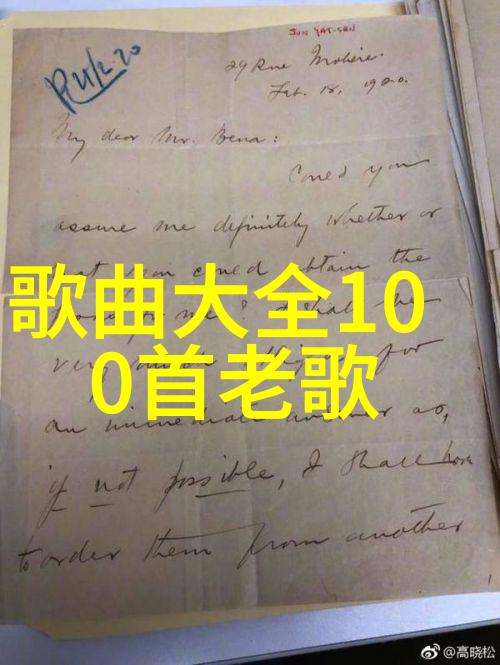 SUN YAT-SEN
R 21/2.20
29 Rue Molière.
Feb. 18, 1920.
My dear Mr. Bena:
Could you
assure me definitely whether or
not you could obtain the
歌曲大全10
0首老歌
me? I shall be
very much obliged for
an immediate answer as,
if not possible, I shall have
to order them from another
@高晓松